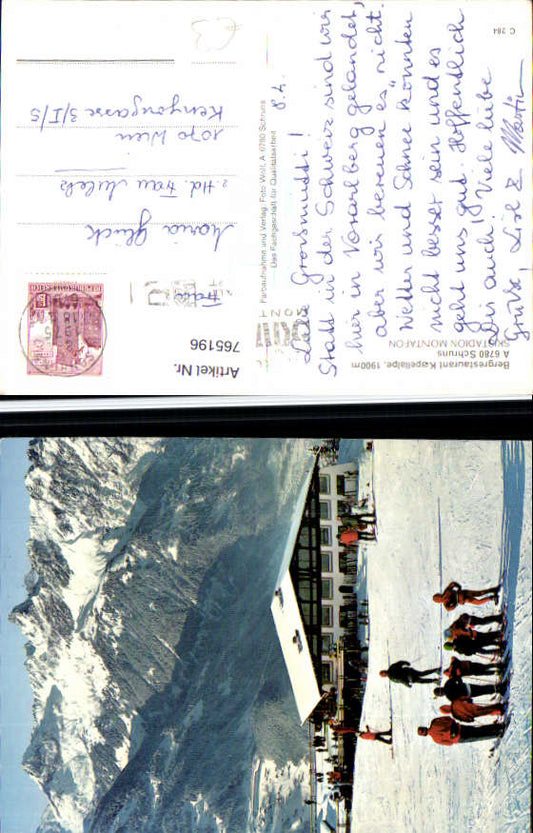 Bergrestaurant Kapellalpe, 1900m
A 6780 Schruns
SKISTADION MONTAFON
Liebe Großmutti!
8.4.
Statt in der Schweiz sind wir
hier in Vorarlberg gelandet,
aber wir bereuen es nicht.
Wetter und Schnee könnten
nicht besser sein und es
geht uns gut. Hoffentlich
Dir auch! Viele liebe
Grüße, Lisl & Martin
C 284
Farbaufnahme und Verlag: Foto Wolf, A 6780 Schruns
Das Fachgeschäft für Qualitätsarbeit
Artikel Nr.
765196
REPUBLIK ÖSTERREICH
Frau
Maria Glück
z. Hd. Frau
1070 Wien
Kenyongasse 3/I/5